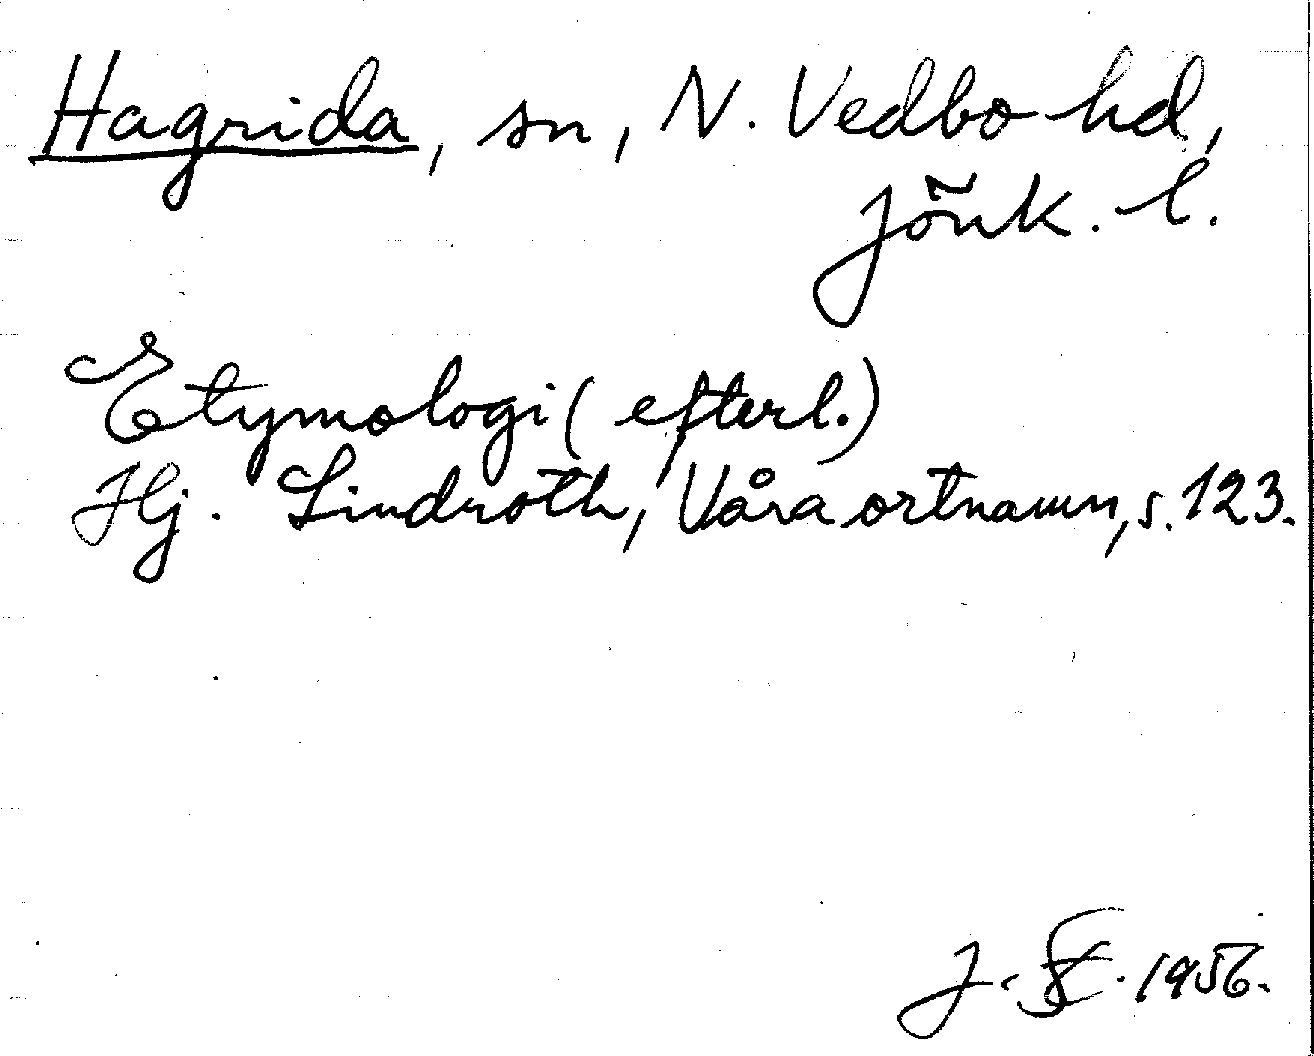 Hagrida, sn, N. Vedbo hd,
Jönk. l.
Etymologi (efterl.)
Hj. Lindroth, Våra ortnamn, s. 123.
1956.